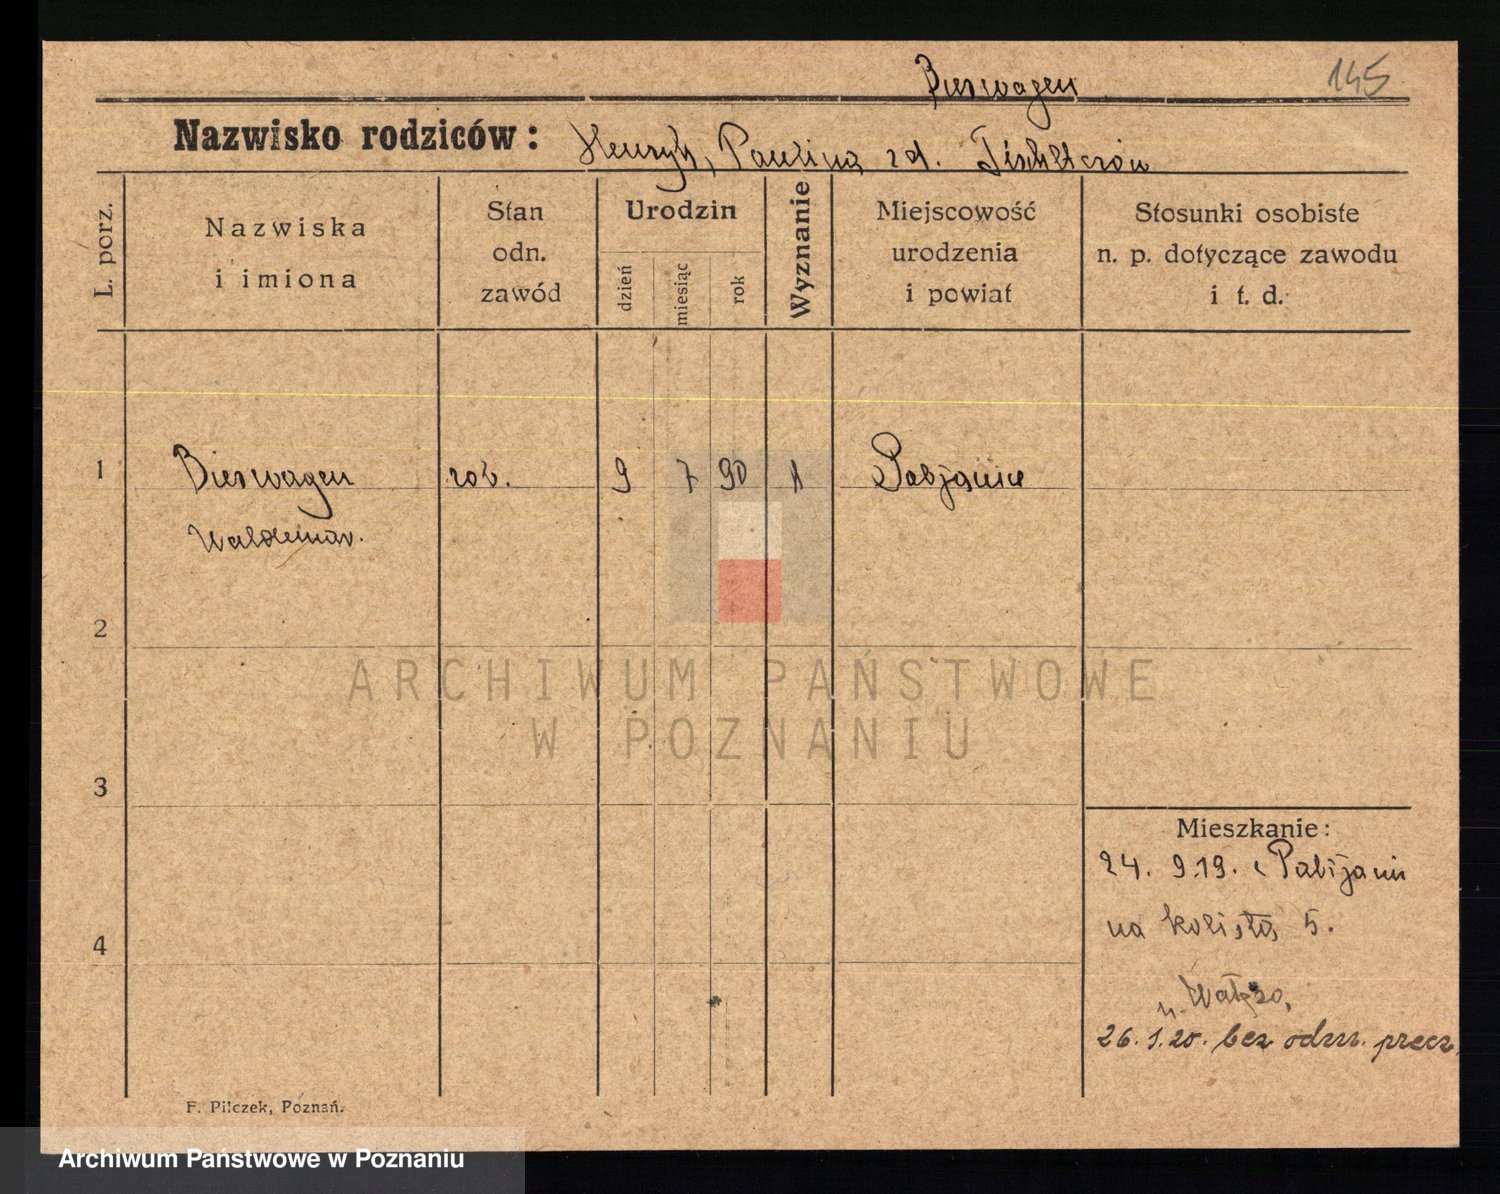 Bierwagen 145
Nazwisko rodziców: Henryk, Paulina zd. Tischlerów
L. porz.
Nazwiska
i imiona
Stan
odn.
zawód
Urodzin
dzień
miesiąc
rok
Wyznanie
Miejscowość
urodzenia
i powiat
Stosunki osobiste
n. p. dotyczące zawodu
i t. d.
1 Bierwagen rob. 9 7 90 Pabjanice
Waldemar.
2
ARCHIWUM PAŃSTWOWE
W POZNANIU
3
Mieszkanie:
24. 9.19. z Pabijanic
na 5.
4
26. 1.20. bez odm. precz.
F. Pilczek, Poznań.
Archiwum Państwowe w Poznaniu